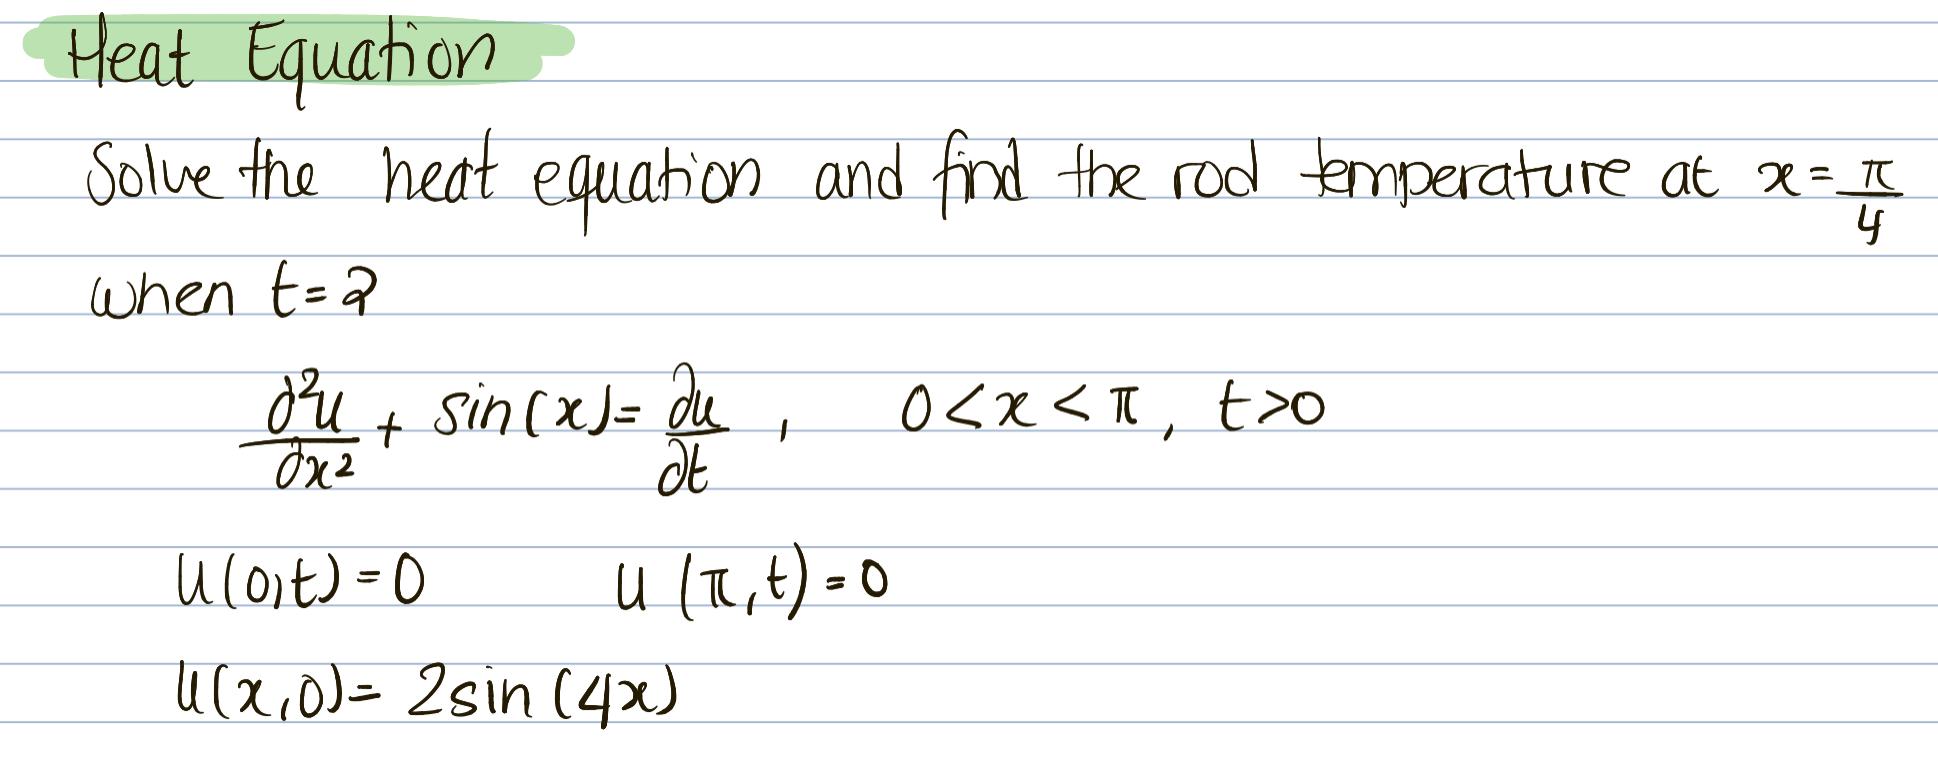 Heat Equation
Solve the heat equation and find the rod temperature at x = π/4
when t=2
∂²u/∂x² + sin(x) = ∂u/∂t , 0<x<π, t>0
u(0,t)=0 u(π,t)=0
u(x,0)= 2sin(4x)